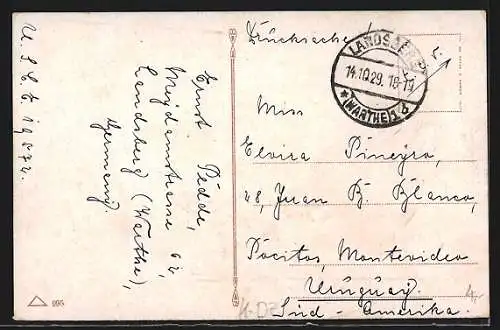 U.S.C.C. 19872.
Ernst Pedde,
62,
Landsberg (Warthe),
Germany.
Drucksache!
LANDSBERG
14.10.29.
(WARTHE)
Miss
Elvira Pineyro,
48, Juan B. Blanco,
Pocitos, Montevideo
Uruguay.
Süd-Amerika.
4,-
995